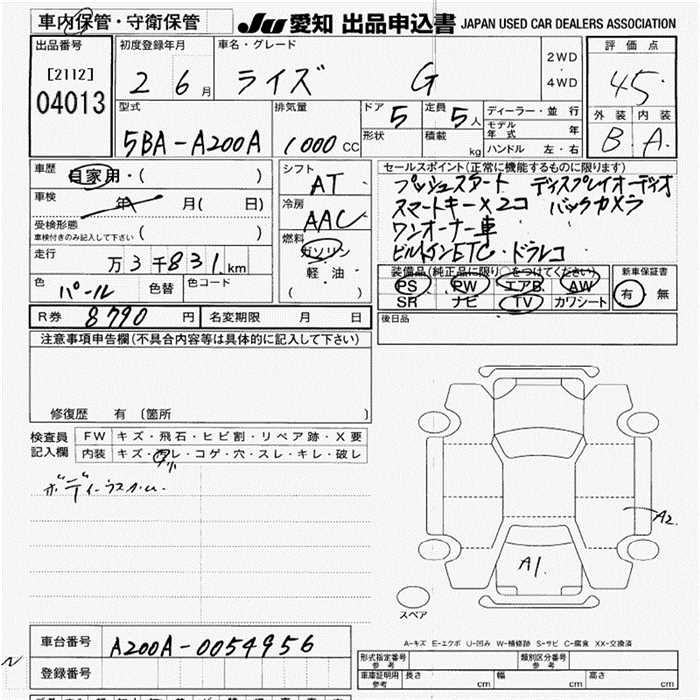 車内保管・守衛保管
JU 愛知 出品申込書 JAPAN USED CAR DEALERS ASSOCIATION
出品番号
[2112]
04013
初度登録年月
2 6月
車名・グレード
ライズ G
2WD
4WD
評価点
4.5
外装 内装
B A
型式
5BA-A200A
排気量
1000 CC
ドア 5
形状
定員 5人
積載 kg
ディーラー・並行
モデル年式 年
ハンドル 左・右
車歴 自家用・( )
車検 年 月( 日)
受検形態
車検付きのみ記入して下さい ( )
走行 万3千831km
色 パール 色替 色コード
シフト AT
冷房 AAC
燃料 ガソリン
軽油
( )
セールスポイント(正常に機能するものに限ります)
プッシュスタート ディスプレイオーディオ
スマートキー×2コ バックカメラ
ワンオーナー車
ビルトインETC・ドラレコ
装備品(純正品に限り○をつけてください) 新車保証書
PS PW エアB AW 有・無
SR ナビ TV カワシート
後日品
R券 8790円 名変期限 月 日
注意事項申告欄(不具合内容等は具体的に記入して下さい)
修復歴 有 〔箇所 〕
検査員記入欄
FW キズ・飛石・ヒビ割・リペア跡・X要
内装 キズ・ヨゴレ・コゲ・穴・スレ・キレ・破レ
A2
A1
スペア
A-キズ E-エクボ U-凹み W-補修跡 S-サビ C-腐食 XX-交換済
車台番号 A200A-0054956
登録番号
形式指定番号 参考 類別区分番号 参考
車庫証明用 参考 長さ cm 幅 cm 高さ cm